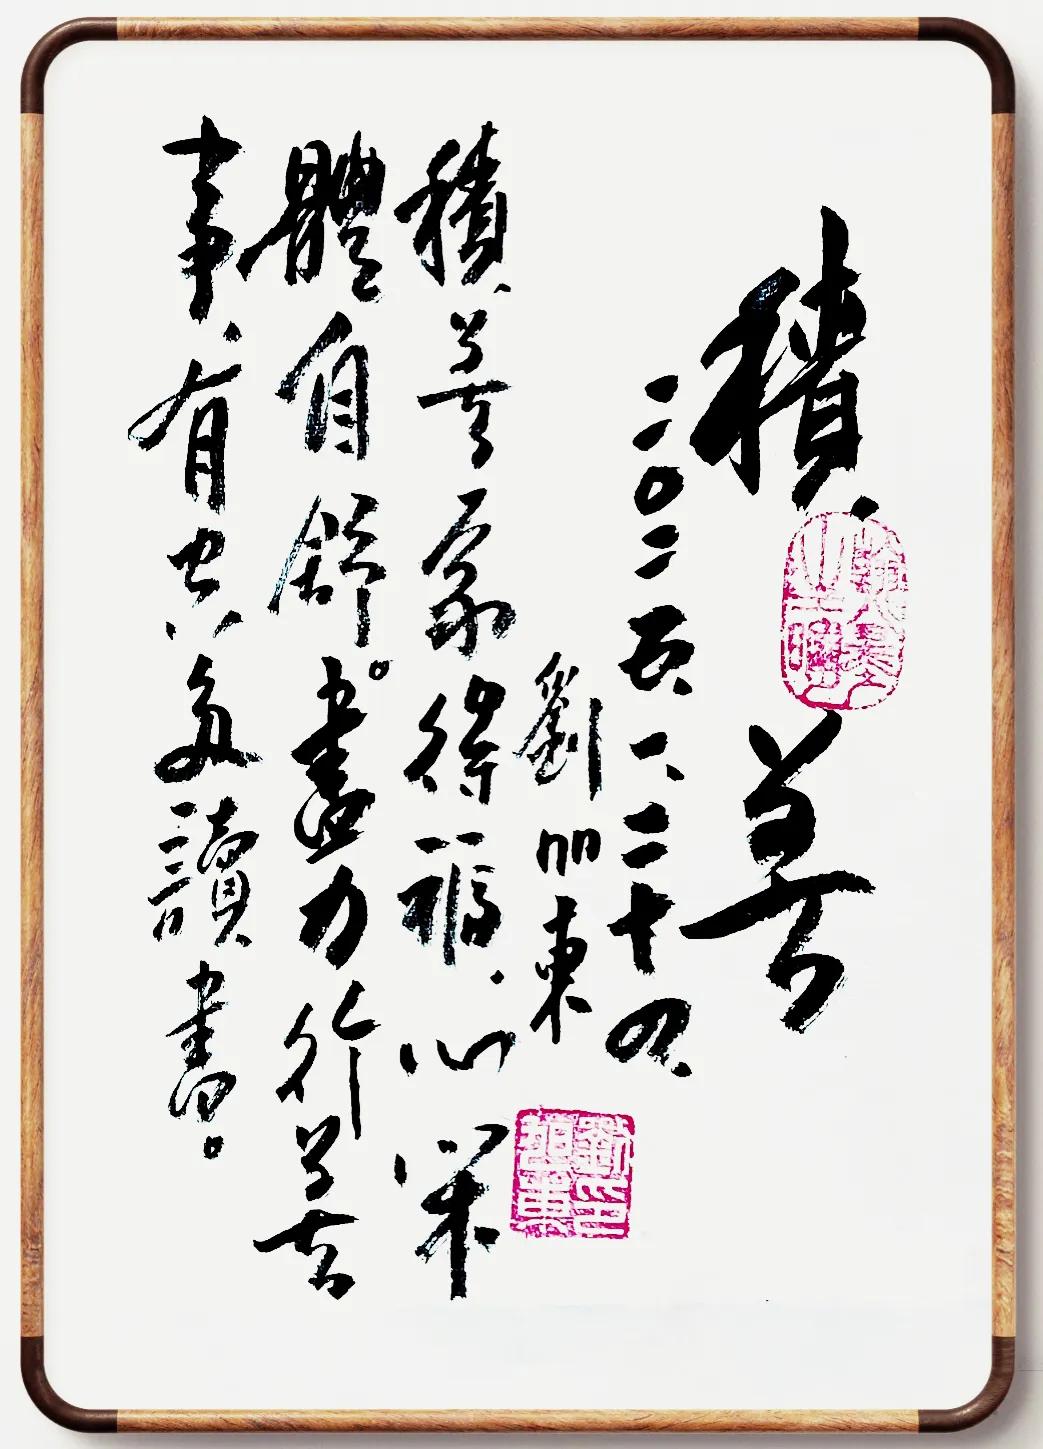 積善
二〇二五、一、二十
劉東
積善家得福、心
體自舒。盡力行善
事、有空多讀書。